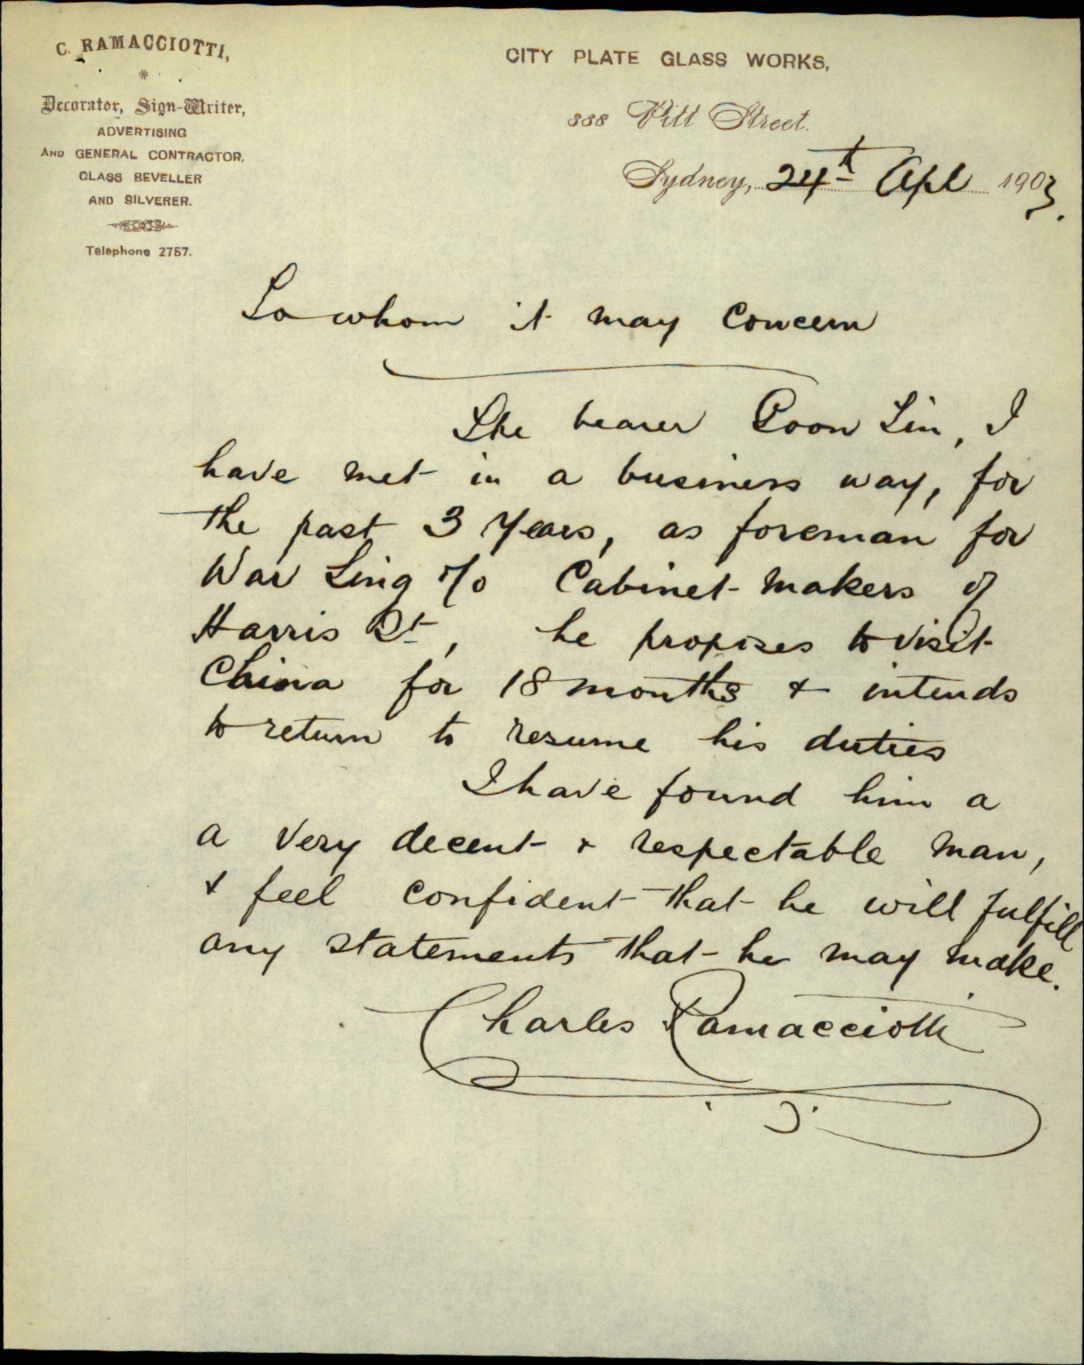 C. RAMACCIOTTI,
Decorator, Sign-Writer,
ADVERTISING
AND GENERAL CONTRACTOR,
GLASS BEVELLER
AND SILVERER.
Telephone 2757.
CITY PLATE GLASS WORKS,
338 Pitt Street.
Sydney, 24th Apl 1903.
To whom it may Concern
The bearer Goon Lin, I
have met in a business way, for
the past 3 Years, as foreman for
War Ling & Co Cabinet-makers of
Harris St, he proposes to visit
China for 18 months & intends
to return to resume his duties
I have found him a
a very decent & respectable man,
& feel confident that he will fulfill
any statements that he may make.
Charles Ramacciotti